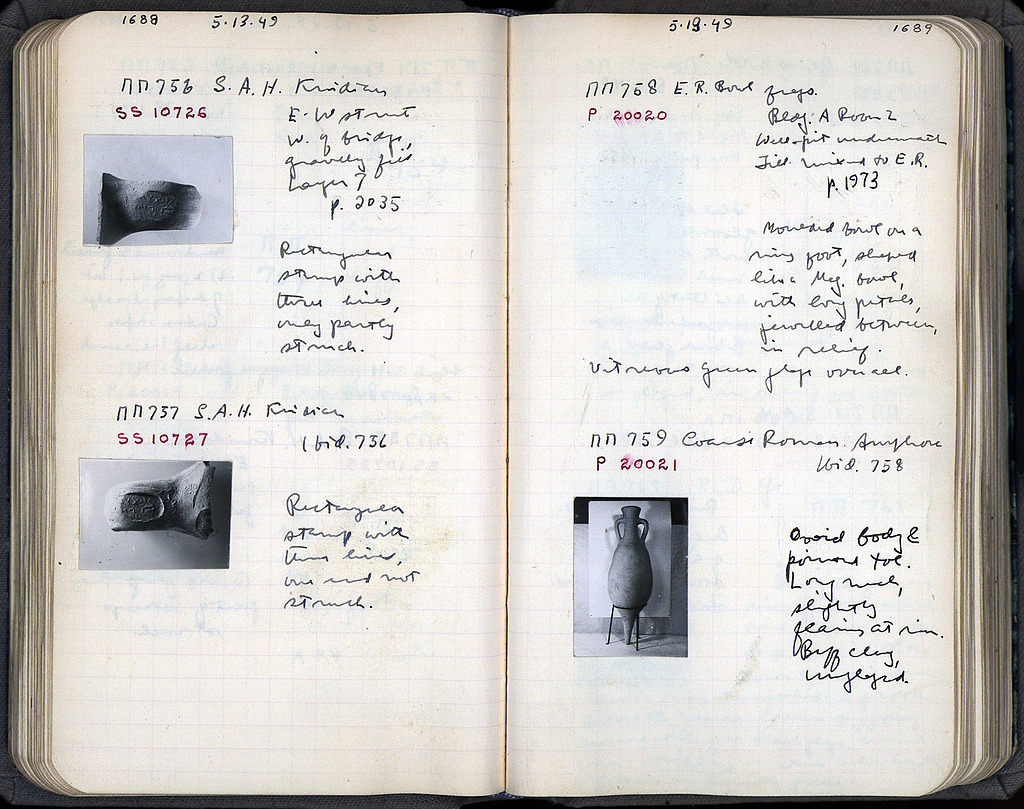 1688 5.13.49
ΠΠ 756 S.A.H. Knidian
SS 10726
E-W street
W. of bridge,
gravelly fill
Layer 7
p. 2035
Rectangular
stamp with
three lines,
only partly
struck.
ΠΠ 757 S.A.H. Knidian
SS 10727
Ibid. 756
Rectangular
stamp with
three lines,
one end not
struck.
5.13.49 1689
ΠΠ 758 E.R. Bowl frags.
P 20020
Bldg. A Room 2
Well-pit underneath
Fill mixed to E.R.
p. 1973
Moulded bowl on a
ring foot, shaped
like a Meg. bowl,
with long petals,
jewelled between,
in relief.
Vitreous green glaze over all.
ΠΠ 759 Coarse Roman Amphora
P 20021
Ibid. 758
Ovoid body &
pointed toe.
Long neck,
slightly
flaring at rim.
Buff clay,
unglazed.